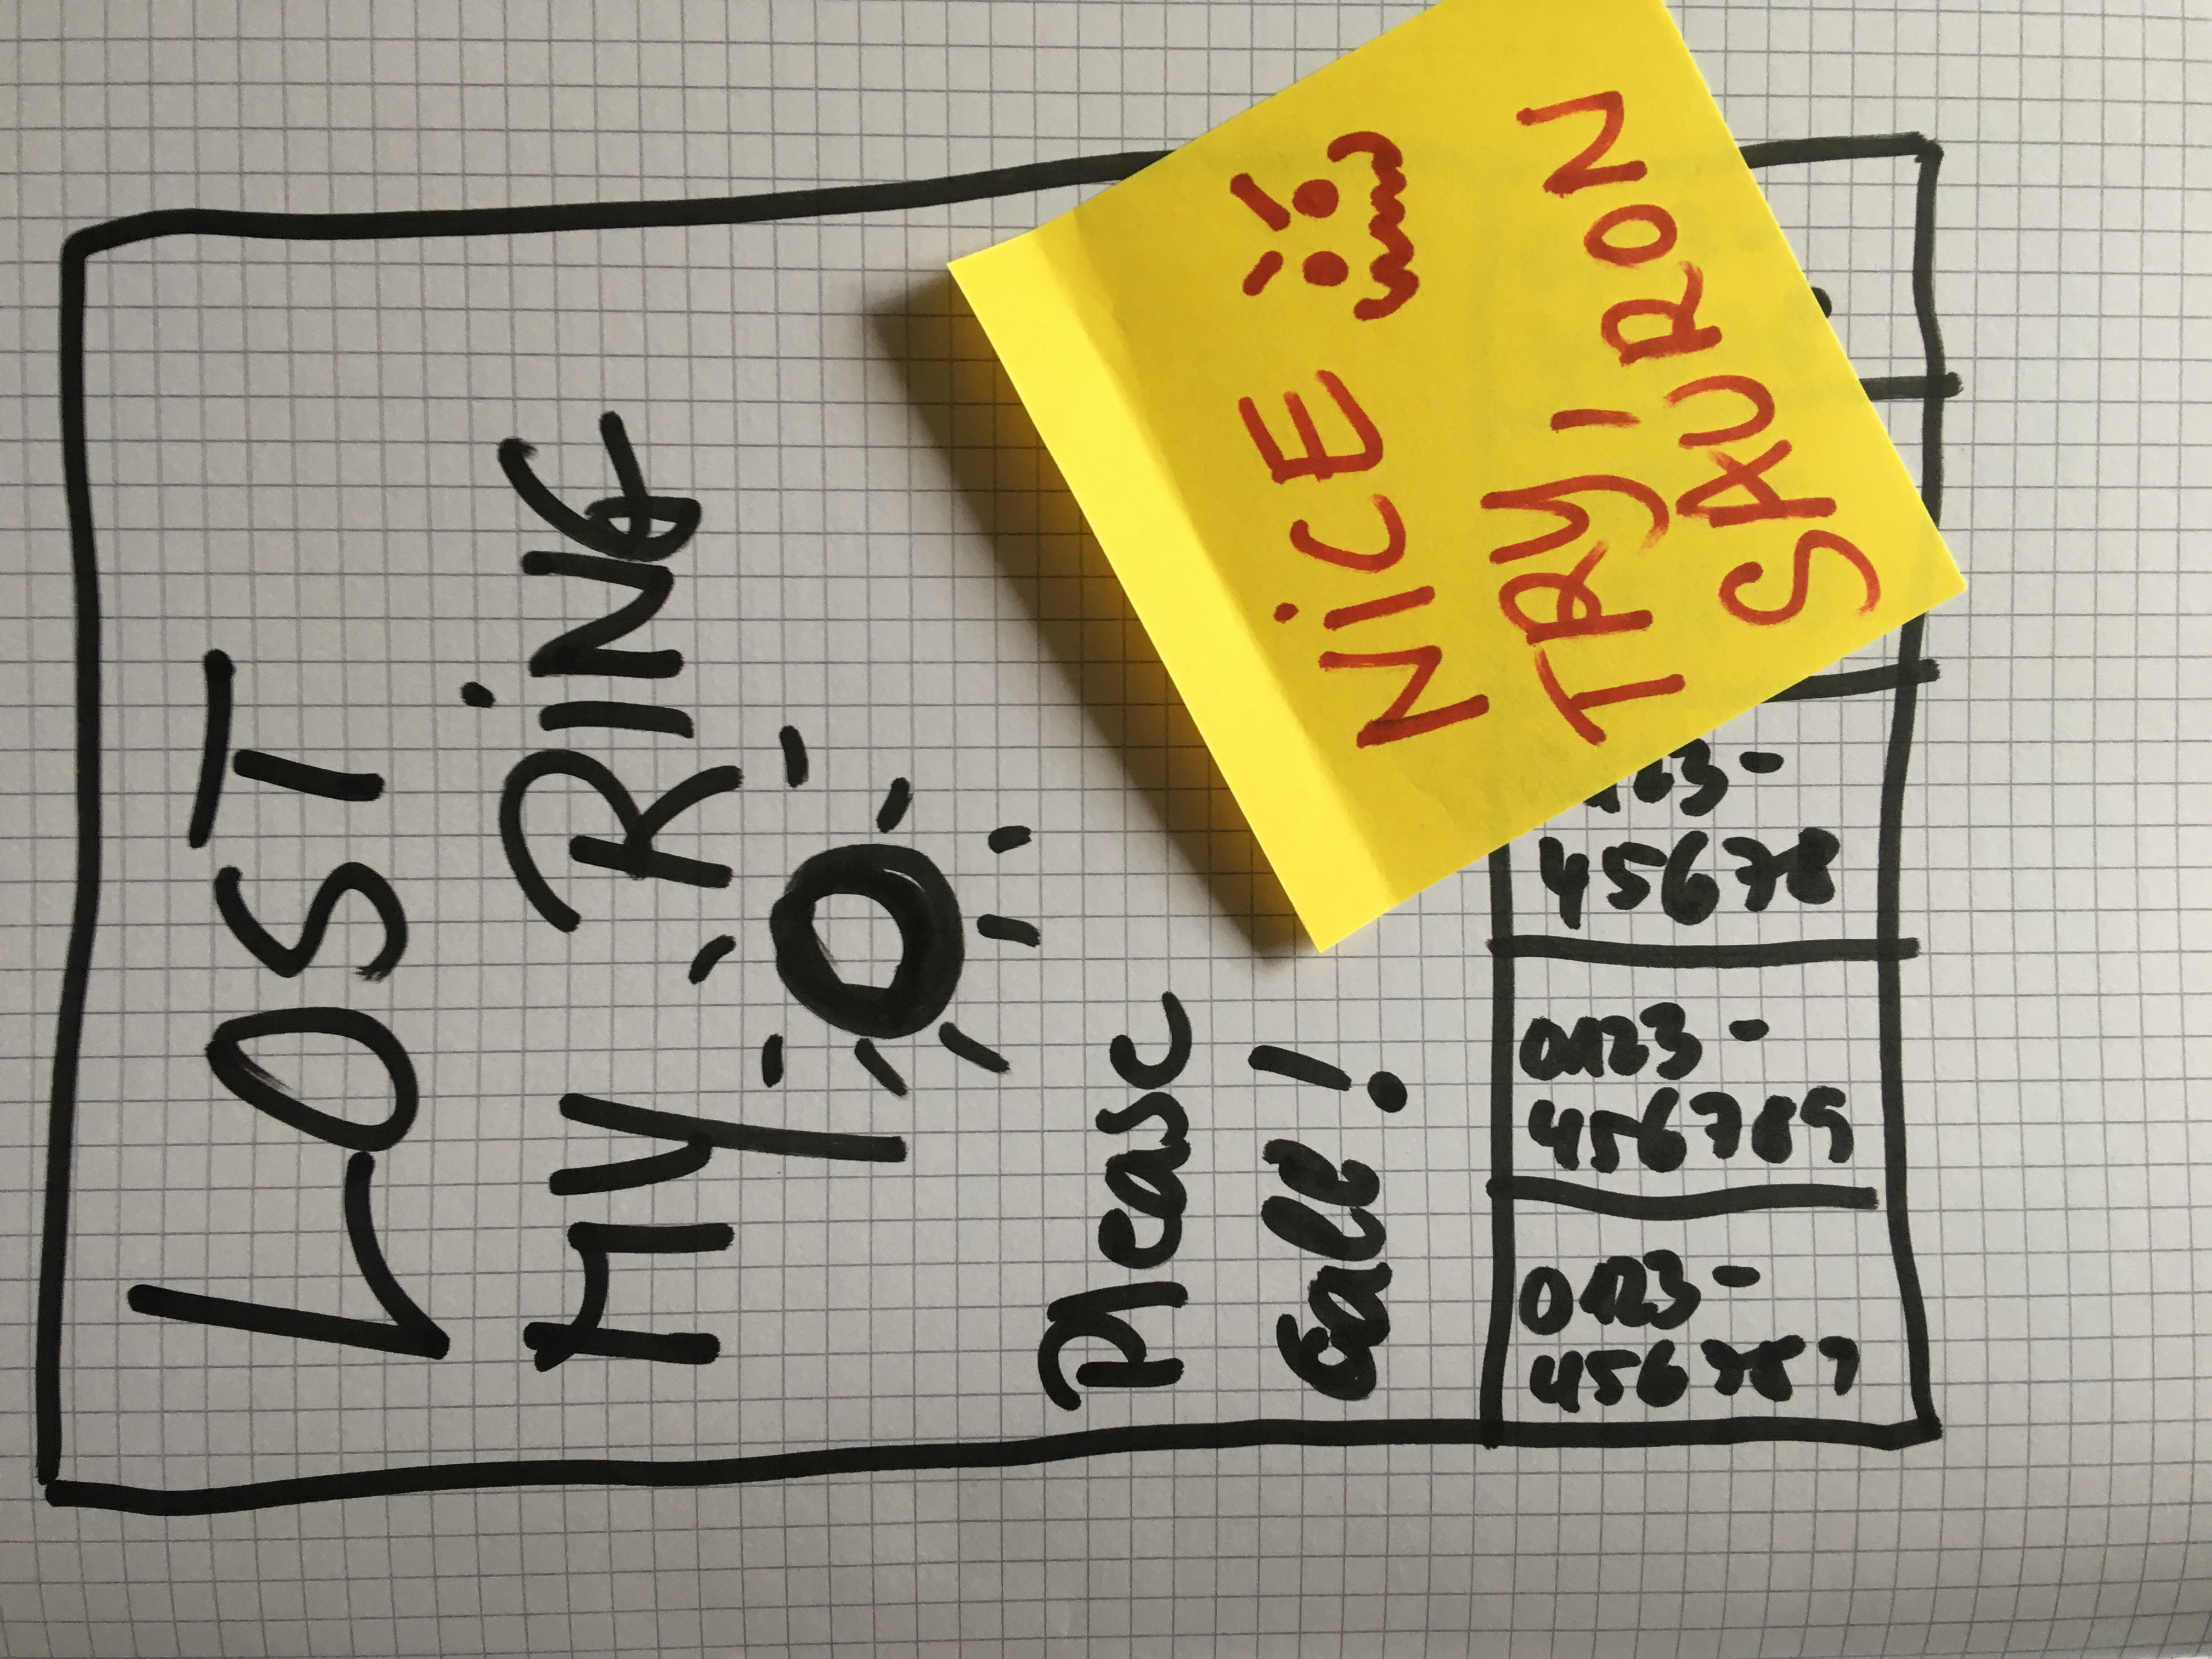 LOST
MY RING
Please
call!
0123-
456787
0123-
456789
45678
NICE
TRY,
SAURON